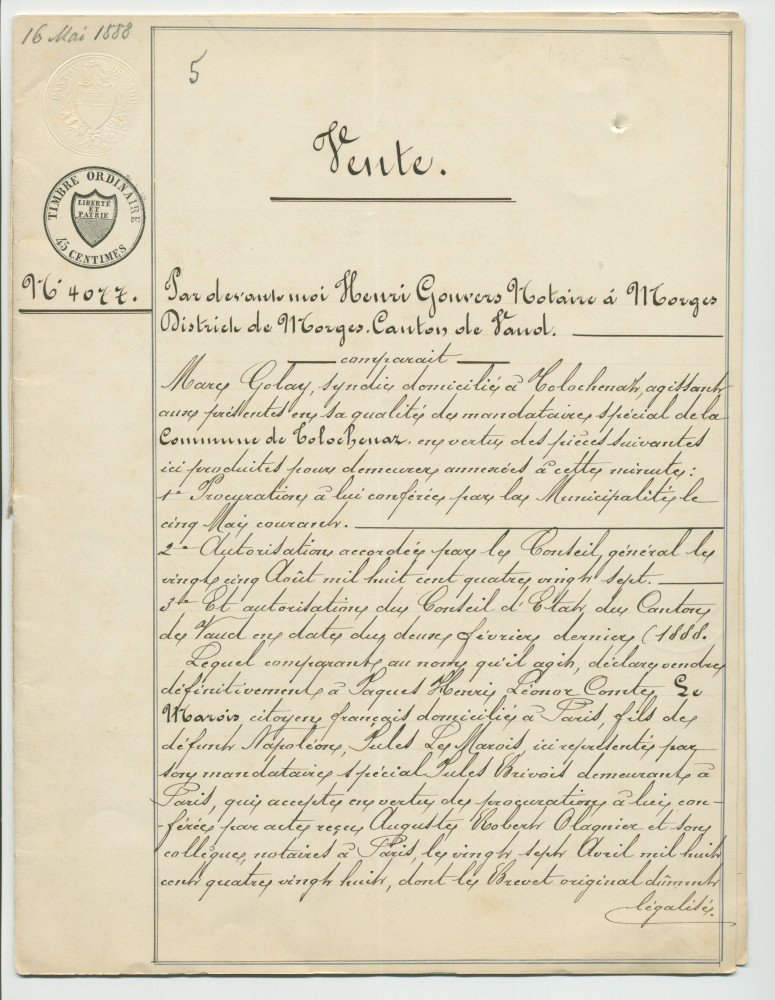 16 Mai 1888
5
Vente.
TIMBRE ORDINAIRE
LIBERTÉ
ET
PATRIE
45 CENTIMES
No 4077.
Par devant moi Henri Gonvers Notaire à Morges
District de Morges. Canton de Vaud.
comparait
Marc Golay, syndic domicilié à Tolochenaz, agissant
aux présentes en sa qualité de mandataire spécial de la
Commune de Tolochenaz. en vertu des pièces suivantes
ici produites pour demeurer annexées à cette minute:
1o Procuration à lui conférée par la Municipalité le
cinq Mai courant.
2o Autorisation accordée par le Conseil général le
vingt cinq Août mil huit cent quatre vingt sept.
3o Et autorisation du Conseil d'Etat du Canton
de Vaud en date du deux février dernier (1888.
Lequel comparant au nom qu'il agit, déclare vendre
définitivement à Jaques Henri Léonor Comte Le
Marois citoyen français domicilié à Paris, fils de
défunt Napoléon, Jules Le Marois, ici représenté par
son mandataire spécial Jules Brivois demeurant à
Paris, qui accepte en vertu de procuration à lui con-
-férée par acte reçu Auguste Robert Olagnier et son
collègue, notaires à Paris, le vingt sept Avril mil huit
cent quatre vingt huit, dont le Brevet original dûment
légalisé.